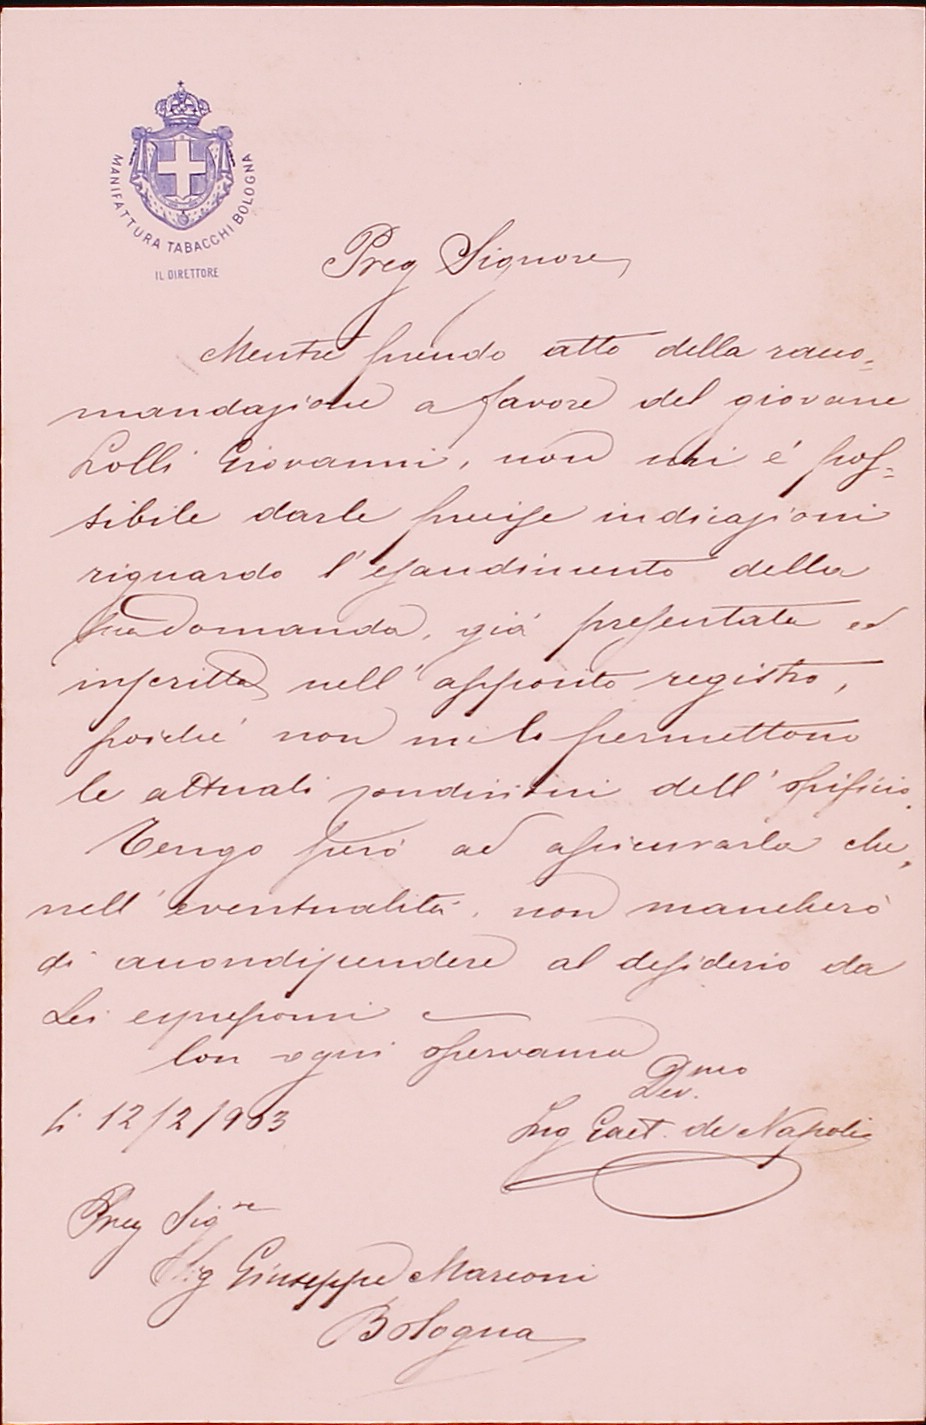 MANIFATTURA TABACCHI BOLOGNA
IL DIRETTORE
Preg Signore
Mentre prendo atto della raco=
mandazione a favore del giovane
Lolli Giovanni, non mi è pos=
sibile darle precise indicazioni
riguardo l'esaudimento della
sua domanda, già presentata ed
inscritta nell'apposito registro,
poiché non me lo permettono
le attuali condizioni dell'opificio.
Tengo però ad assicurarla che,
nell'eventualità, non mancherò
di accondiscendere al desiderio da
Lei espressomi
Con ogni osservanza
Dev.mo
Ing Gaet. de Napoli
li 12/2/903
Preg Sigre
Sig Giuseppe Marconi
Bologna